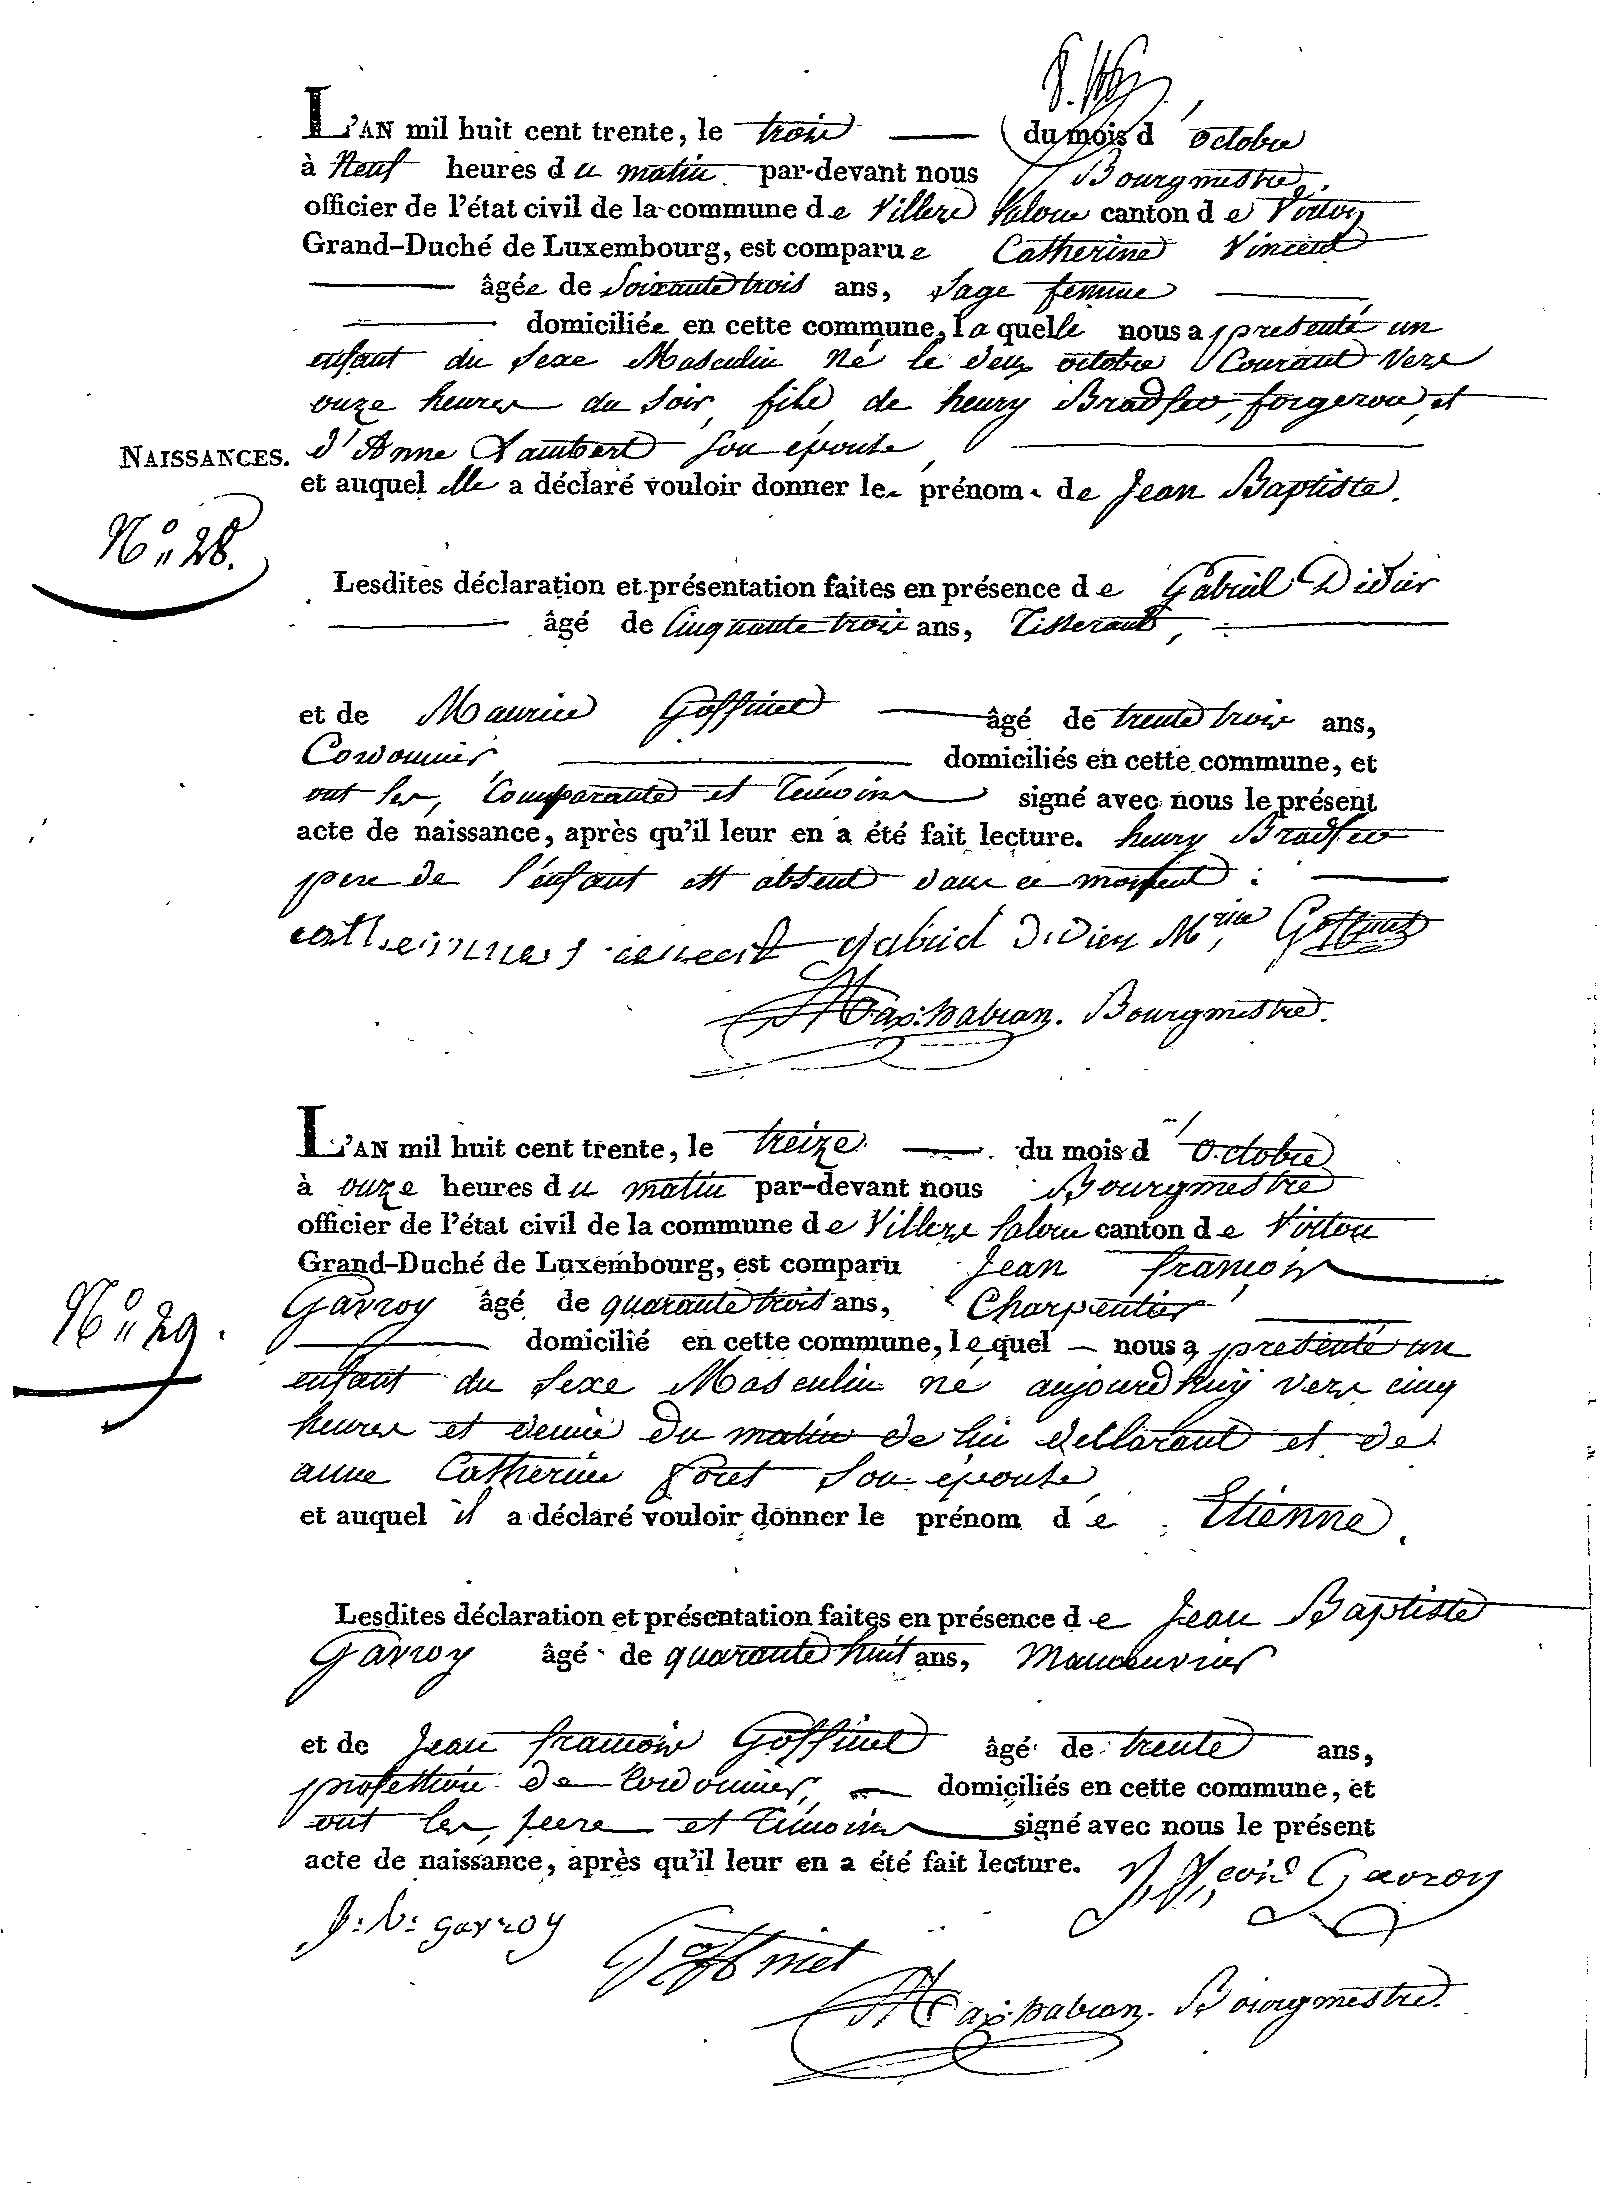 L'AN mil huit cent trente, le trois du mois d'octobre
à Neuf heures du matin par-devant nous Bourgmestre,
officier de l'état civil de la commune de Villers Laloue canton de Virton
Grand-Duché de Luxembourg, est comparue Catherine Vincent
âgée de soixante trois ans, sage femme
domiciliée en cette commune, laquelle nous a presenté un
enfant du sexe Masculin né le deux octobre Courant vers
onze heures du soir, fils de henry Bradfer, forgeron, et
NAISSANCES. d'Anne Lambert son épouse,
et auquel elle a déclaré vouloir donner le prénom de Jean Baptiste.
N° 28.
Lesdites déclaration et présentation faites en présence de Gabriel Didier
âgé de Cinquante trois ans, Tisserant,
et de Maurice Goffinet âgé de trente trois ans,
Cordonnier domiciliés en cette commune, et
ont les, Comparante et Témoins signé avec nous le présent
acte de naissance, après qu'il leur en a été fait lecture. henry Bradfer
pere de l'enfant est absent dans ce moment.
Gabriel Didier M.rice Goffinet
Bourgmestre.
L'AN mil huit cent trente, le treize du mois d'Octobre
à onze heures du matin par-devant nous Bourgmestre
officier de l'état civil de la commune de Villers Laloue canton de Virton
Grand-Duché de Luxembourg, est comparu Jean françois
N° 29. Gavroy âgé de quarante trois ans, Charpentier
domicilié en cette commune, lequel nous a presenté un
enfant du sexe Masculin né aujourd'huy vers cinq
heures et demie du matin de lui déclarant et de
anne Catherine foret son épouse,
et auquel il a déclaré vouloir donner le prénom de Etienne.
Lesdites déclaration et présentation faites en présence de Jean Baptiste
Gavroy âgé de quarante huit ans, Manoeuvrier
et de Jean francois Goffinet âgé de trente ans,
profession de Cordonnier, domiciliés en cette commune, et
ont les, peere et Témoins signé avec nous le présent
acte de naissance, après qu'il leur en a été fait lecture. Gavroy
J: b: gavroy
Goffinet
Bourgmestre.